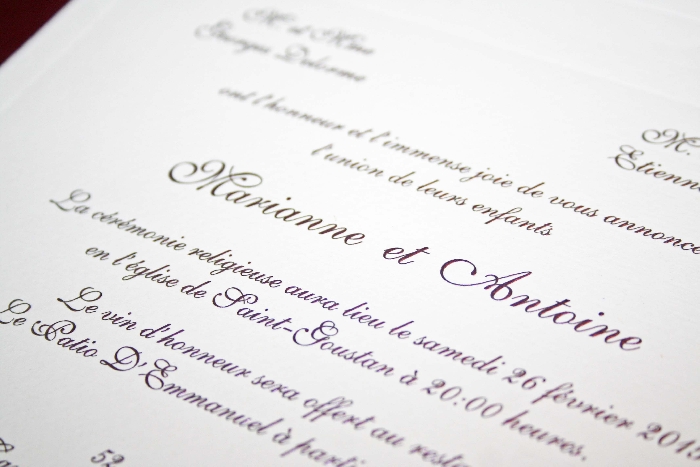 M. et Mme
Georges Delorme
M.
Etienne
ont l'honneur et l'immense joie de vous annoncer
l'union de leurs enfants
Marianne et Antoine
La cérémonie religieuse aura lieu le samedi 26 février 201
en l'église de Saint-Goustan à 20:00 heures.
Le vin d'honneur sera offert au resta
Le Patio D'Emmanuel à parti
53